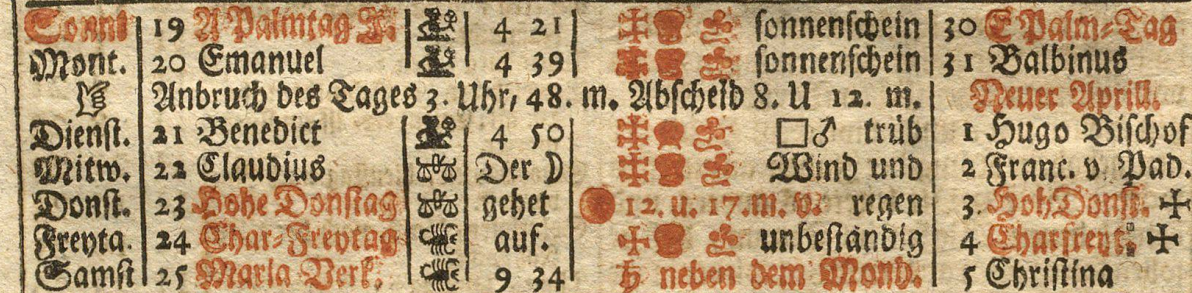 Sonnt 19 A Palmtag J. 4 21 sonnenschein 30 E Palm-Tag
Mont. 20 Emanuel 4 39 sonnenschein 31 Balbinus
Anbruch des Tages 3. Uhr, 48. m. Abscheid 8. U 12. m. Neuer Aprill.
Dienst. 21 Benedict 4 50 □♂ trüb 1 Hugo Bischof
Mitw. 22 Claudius Der ☽ Wind und 2 Franc. v. Pad.
Donst. 23 Hohe Donstag gehet 12. u. 17. m. v. regen 3. Hoh Donst. ✠
Freyta. 24 Char-Freytag auf. unbeständig 4 Charfreyt. ✠
Samst 25 Maria Verk. 9 34 ♄ neben dem Mond. 5 Christina